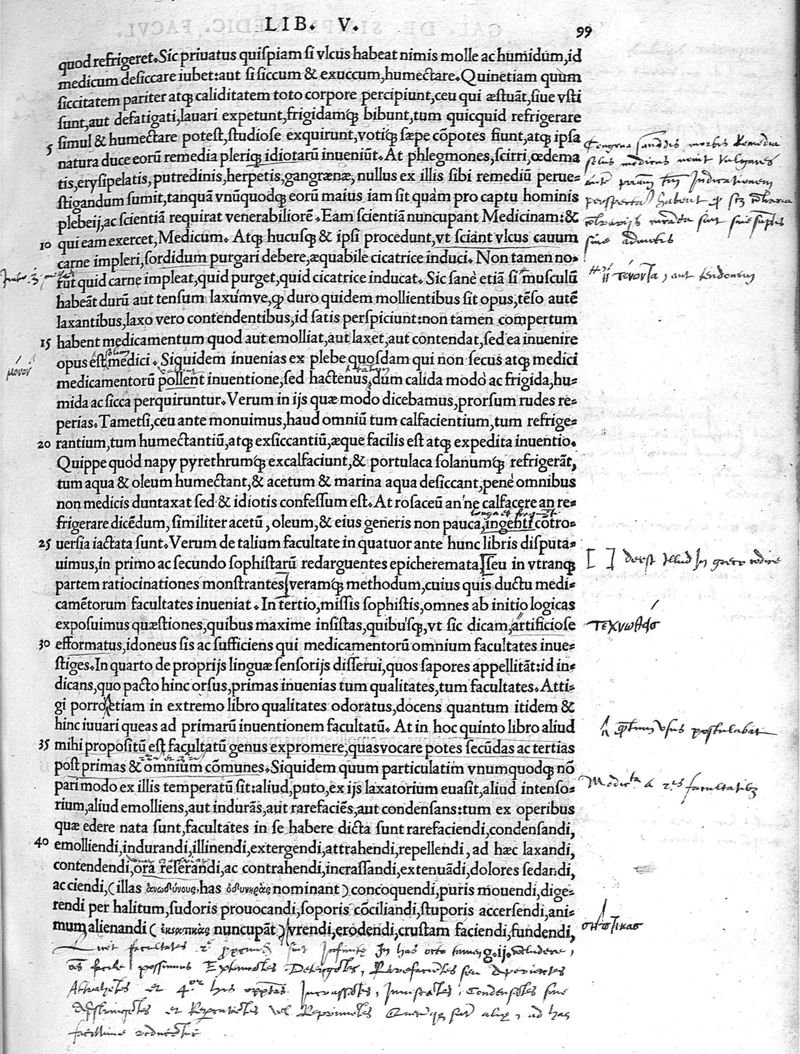 LIB. V. 99
quod refrigeret. Sic priuatus quispiam si vlcus habeat nimis molle ac humidum, id
medicum desiccare iubet: aut si siccum & exuccum, humectare. Quinetiam quum
siccitatem pariter atq; caliditatem toto corpore percipiunt, ceu qui æstuāt, siue vsti
sunt, aut defatigati, lauari expetunt, frigidamq; bibunt, tum quicquid refrigerare
5 simul & humectare potest, studiose exquirunt, votiq; sæpe cōpotes fiunt, atq; ipsa
natura duce eorū remedia pleriq; idiotarū inueniūt. At phlegmones, scirri, œdema-
tis, erysipelatis, putredinis, herpetis, gangrænæ, nullus ex illis sibi remediū perue-
stigandum sumit, tanquā vnūquodq; eorū maius iam sit quàm pro captu hominis
plebeij, ac scientiā requirat venerabiliorē. Eam scientiā nuncupant Medicinam: &
10 qui eam exercet, Medicum. Atq; hucusq; & ipsi procedunt, vt sciant vlcus cauum
carne impleri, sordidum purgari debere, æquabile cicatrice induci. Non tamen no-
rūt quid carne impleat, quid purget, quid cicatrice inducat. Sic sanè etiā si musculū
habeāt durū aut tensum laxumve, q; duro quidem mollientibus sit opus, tēso autē
laxantibus, laxo vero contendentibus, id satis perspiciunt: non tamen compertum
15 habent medicamentum quod aut emolliat, aut laxet, aut contendat, sed ea inuenire
opus est medici. Siquidem inuenias ex plebe quosdam qui non secus atq; medici
μόνον
medicamentorū pollent inuentione, sed hactenus, dum calida modò ac frigida, hu-
mida ac sicca perquiruntur. Verum in ijs quæ modo dicebamus, prorsum rudes re-
perias. Tametsi, ceu ante monuimus, haud omniū tum calfacientium, tum refrige-
20 rantium, tum humectantiū, atq; exsiccantiū, æque facilis est atq; expedita inuentio.
Quippe quòd napy pyrethrumq; excalfaciunt, & portulaca solanumq; refrigerāt,
tum aqua & oleum humectant, & acetum & marina aqua desiccant, penè omnibus
non medicis duntaxat sed & idiotis confessum est. At rosaceū an'ne calfacere an re-
frigerare dicēdum, similiter acetū, oleum, & eius generis non pauca, ingenti cōtro-
25 uersia iactata sunt. Verum de talium facultate in quatuor ante hunc libris disputa-
uimus, in primo ac secundo sophistarū redarguentes epicheremata [seu in vtranq;
[ ] deest illud in græco codice
partem ratiocinationes monstrantes] veramq; methodum, cuius quis ductu medi-
camētorum facultates inueniat. In tertio, missis sophistis, omnes ab initio logicas
exposuimus quæstiones, quibus maxime insistas, quibusq;, vt sic dicam, artificiose
τεχνωθεὶς
30 efformatus, idoneus sis ac sufficiens qui medicamentorū omnium facultates inue-
stiges. In quarto de proprijs linguæ sensorijs disserui, quos sapores appellitāt: id in-
dicans, quo pacto hinc orsus, primas inuenias tum qualitates, tum facultates. Atti-
gi porro etiam in extremo libro qualitates odoratus, docens quantum itidem &
hinc iuuari queas ad primarū inuentionem facultatū. At in hoc quinto libro aliud
quantum vsus postulabat
35 mihi propositū est facultatū genus expromere, quas vocare potes secūdas ac tertias
post primas & omnium cōmunes. Siquidem quum particulatim vnumquodq; nō
pari modo ex illis temperatū sit: aliud, puto, ex ijs laxatorium euasit, aliud intenso-
rium, aliud emolliens, aut indurās, aut rarefaciēs, aut condensans: tum ex operibus
quæ edere nata sunt, facultates in se habere dicta sunt rarefaciendi, condensandi,
40 emolliendi, indurandi, illinendi, extergendi, attrahendi, repellendi, ad hæc laxandi,
contendendi, ora reserandi, ac contrahendi, incrassandi, extenuādi, dolores sedandi,
ac ciendi, (illas ἀνωδύνους, has ὀδυνηρὰς nominant) concoquendi, puris mouendi, dige-
rendi per halitum, sudoris prouocandi, soporis cōciliandi, stuporis accersendi, ani-
mum alienandi ( nuncupāt) vrendi, erodendi, crustam faciendi, fundendi,
g.ij.